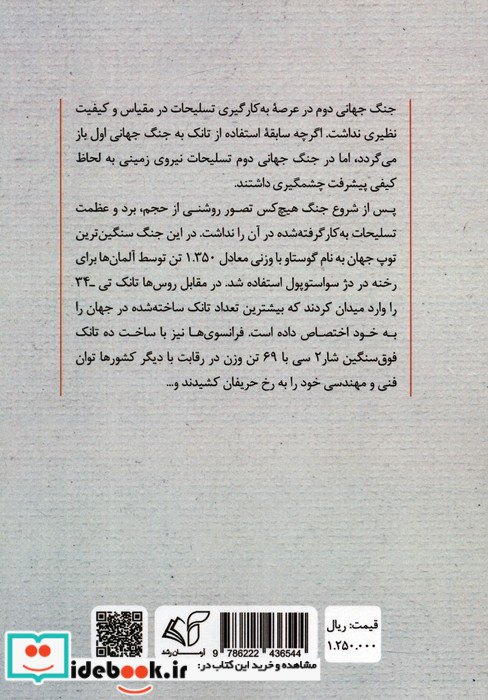 جنگ جهانی دوم در عرصهٔ به‌کارگیری تسلیحات در مقیاس و کیفیت
نظیری نداشت. اگرچه سابقهٔ استفاده از تانک به جنگ جهانی اول باز
می‌گردد، اما در جنگ جهانی دوم تسلیحات نیروی زمینی به لحاظ
کیفی پیشرفت چشمگیری داشتند.
پس از شروع جنگ هیچ‌کس تصور روشنی از حجم، برد و عظمت
تسلیحات به‌کارگرفته‌شده در آن را نداشت. در این جنگ سنگین‌ترین
توپ جهان به نام گوستاو با وزنی معادل ۱.۳۵۰ تن توسط آلمان‌ها برای
رخنه در دژ سواستوپول استفاده شد. در مقابل روس‌ها تانک تی ـ۳۴
را وارد میدان کردند که بیشترین تعداد تانک ساخته‌شده در جهان را
به خود اختصاص داده است. فرانسوی‌ها نیز با ساخت ده تانک
فوق‌سنگین شار۲ سی با ۶۹ تن وزن در رقابت با دیگر کشورها توان
فنی و مهندسی خود را به رخ حریفان کشیدند و...
قیمت: ریال
۱.۲۵۰.۰۰۰
9 786222 436544
آرمـــان رشد
مشاهده و خرید این کتاب در:
idebook.ir